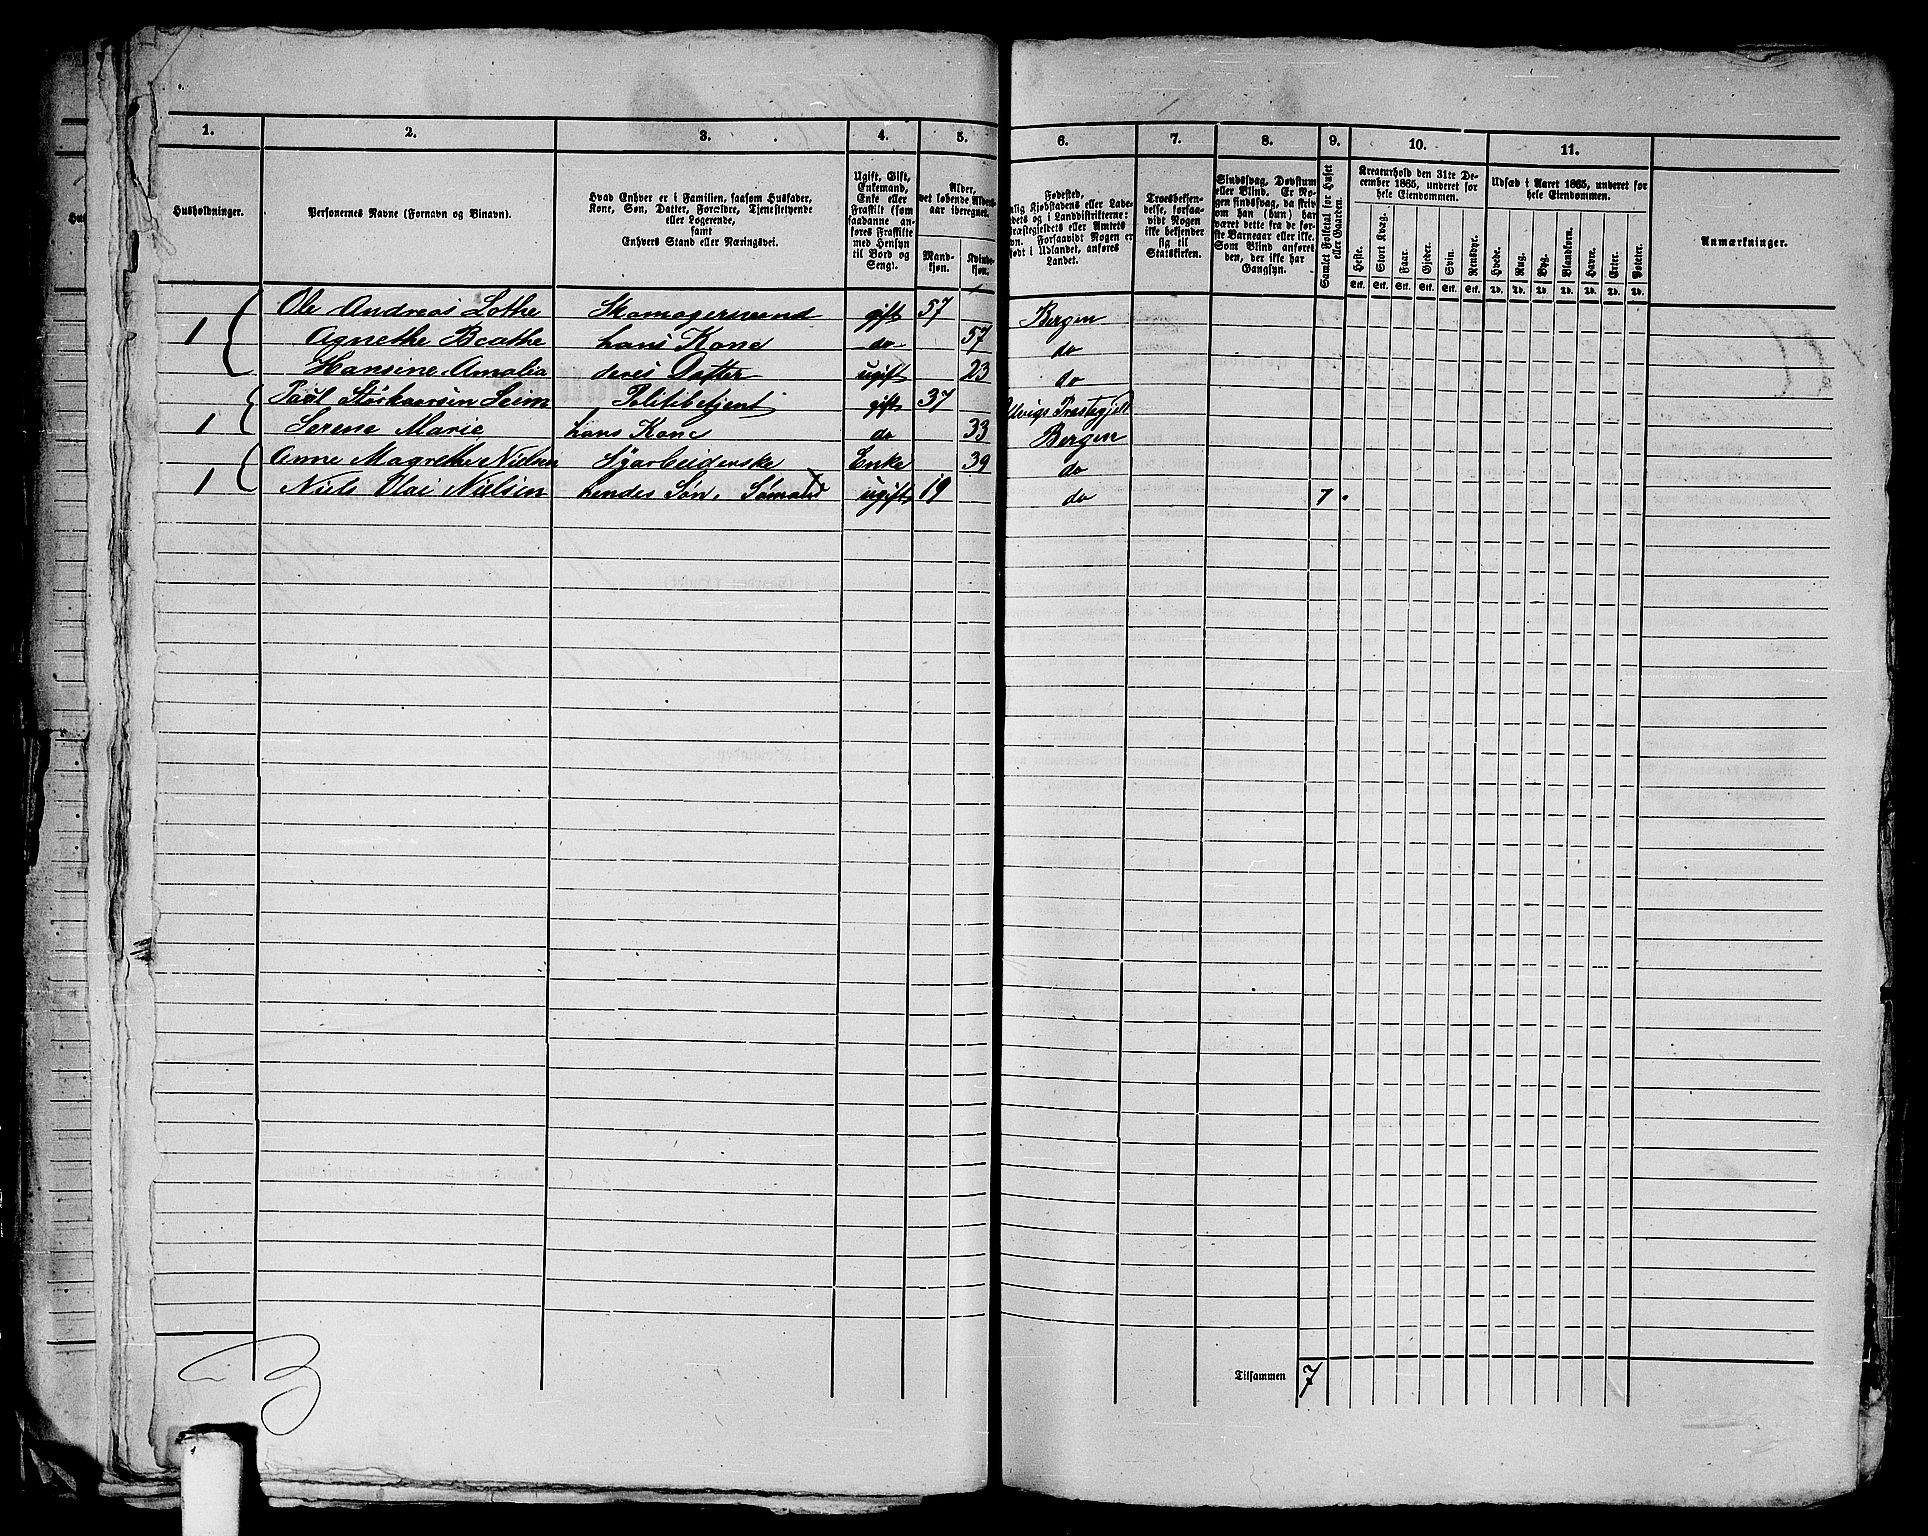 1. 2. 3. 4. 5. 6. 7. 8. 9. 10. 11.
Husholdninger.
Personernes Navne (Fornavn og Binavn).
Hvad Enhver er i Familien, saasom Husfader, Kone, Søn, Datter, Forældre, Tjenestetyende eller Logerende, samt Enhvers Stand eller Næringsvei.
Ugift, Gift, Enkemand, Enke eller Fraskilt (som saadanne anføres Fraskilte med Hensyn til Bord og Seng).
Alder, det løbende Aldersaar iberegnet.
Mandkjøn. Kvindekjøn.
Fødested,
lig Kjøbstadens eller Ladestedets og i Landdistrikterne: Præstegjeldets eller Amtets Navn. Forsaavidt Nogen er født i Udlandet, anføres Landet.
Troesbekjendelse, forsaavidt Nogen ikke bekjender sig til Statskirken.
Sindssvag, Døvstum eller Blind. Er Nogen sindssvag, da skriv om han (hun) har været dette fra de første Barneaar eller ikke. Som Blind anføres den, der ikke har Gangsyn.
Samlet Folketal for Huset eller Gaarden.
Kreaturhold den 31te December 1865, underet for hele Eiendommen.
Heste. Stort Kvæg. Faar. Gjeder. Svin. Rensdyr.
Stk. Stk. Stk. Stk. Stk. Stk.
Udsæd i Aaret 1865, underet for hele Eiendommen.
Hvede. Rug. Byg. Blandkorn. Havre. Erter. Poteter.
Td. Td. Td. Td. Td. Td. Td.
Anmærkninger.
Ole Andreas Lothe Skomagersvend gift 57 Bergen
1 Agnethe Beathe hans Kone do 57 do
Hansine Amalia deres Datter ugift 23 do
Paul Seim Politibetjent gift 37 Ulvigs Præstegjeld
1 Serene Marie hans Kone do 33 Bergen
Anne Magrethe Nielsen Syarbeiderske Enke 39 do
1 Niels Nielsen hendes Søn, Sømand ugift 19 do 7
Tilsammen 7
3